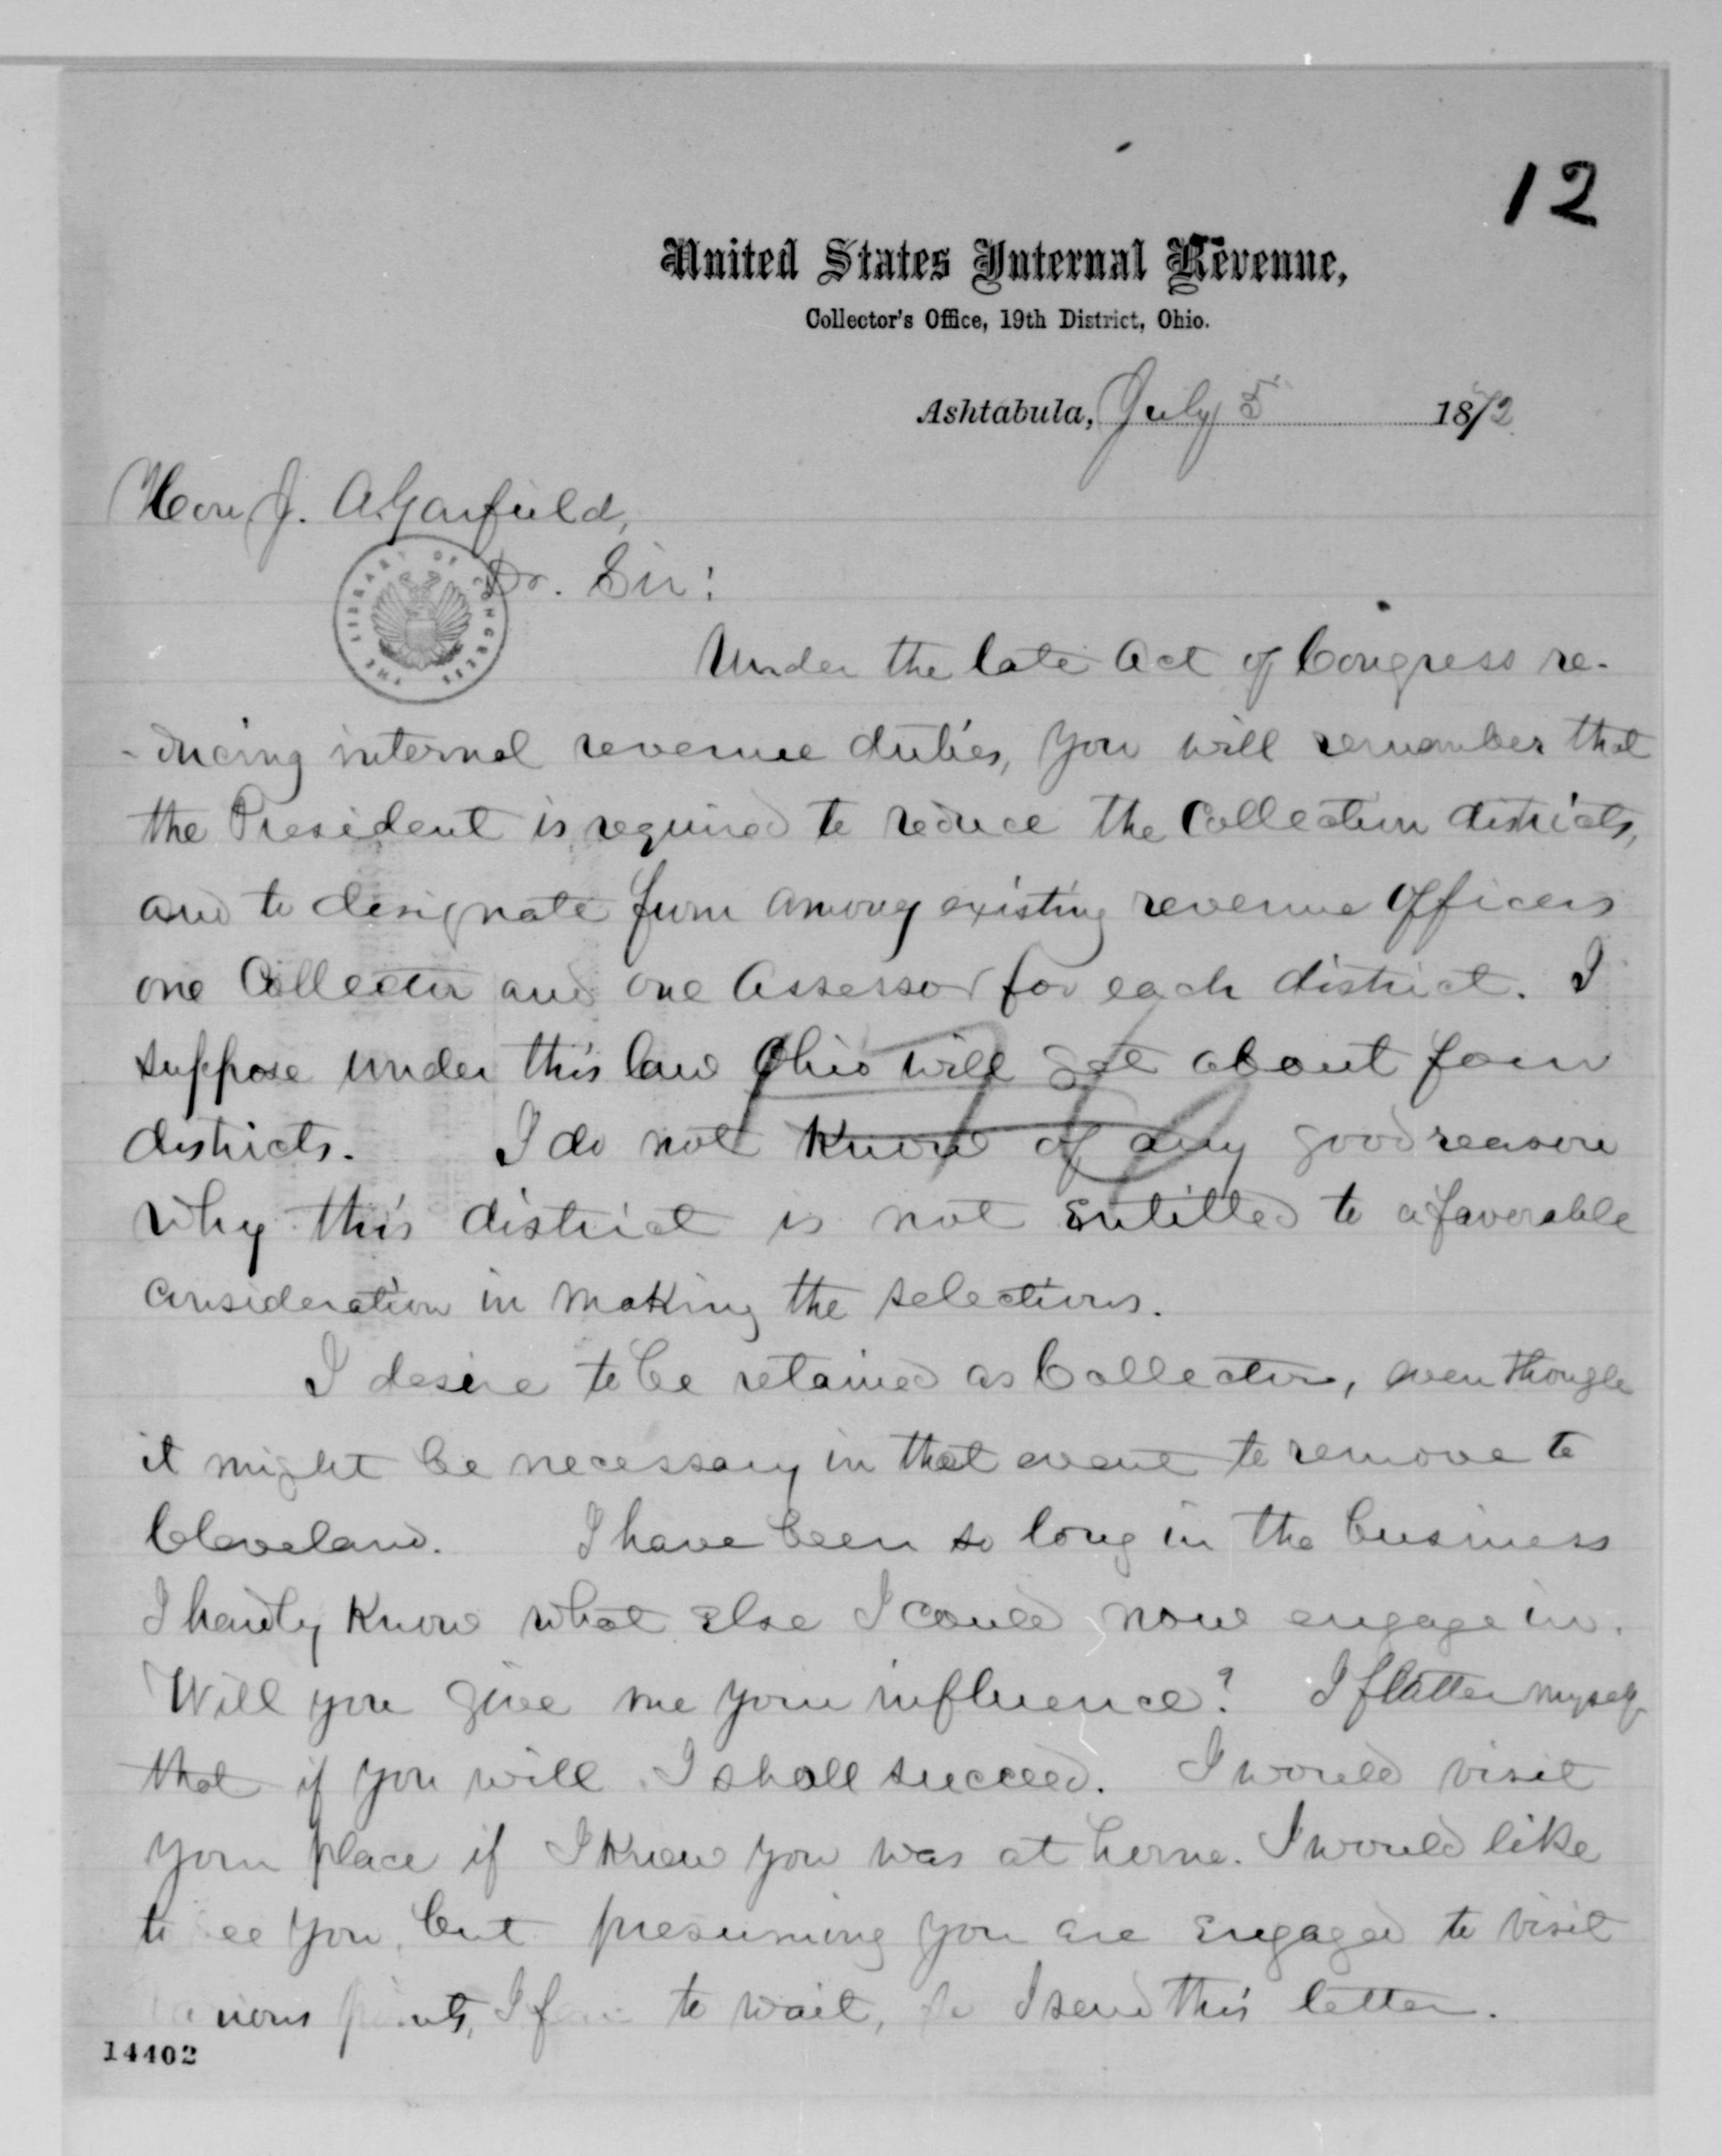 12
United States Internal Revenue,
Collector's Office, 19th District, Ohio.
Ashtabula, July 5 1872
Hon J. A Garfield,
THE LIBRARY OF CONGRESS
Dr. Sir:
Under the late Act of Congress re-
-ducing internal revenue duties, you will remember that
the President is required to reduce the Collection districts,
and to designate from among existing revenue Officers
one Collector and one Assessor for each district. I
suppose under this law Ohio will get about four
districts. I do not know of any good reason
why this district is not entitled to a favorable
consideration in making the selections.
I desire to be retained as Collector, even though
it might be necessary in that event to remove to
Cleveland. I have been so long in the business
I hardly know what else I could now engage in.
Will you give me your influence? I flatter myself
that if you will I shall succeed. I would visit
your place if I knew you was at home. I would like
to see you, but presuming you are engaged to visit
various points, I fear to wait, so I send this letter.
14402